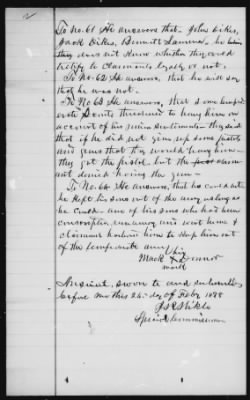 To No. 61 He answers that John Dikes,
Jack Dikes, Bennett Lanier, he
they does not know whether they could
testify to Claimants loyalty or not.
To No. 62 He answers, that he will say
that he was not.
To No 63 He answers, that some confed-
erate Scouts threatened to hang him on
account of his union sentiments. they said
that if he did not give up some pistol
and guns that they would hang him—
they got the pistol. but the claim-
ant denied having the gun—
To No. 64 He answers, that he
he kept his sons out of the army as long as
he could. one of his sons who had been
conscripted ran away and went home &
claimant harbored him to keep him out
of the confederate army
his
Mack X Connor
mark
Answered, sworn to and subscribed
before me this 24 day of Feby 1888
Special Commissioner